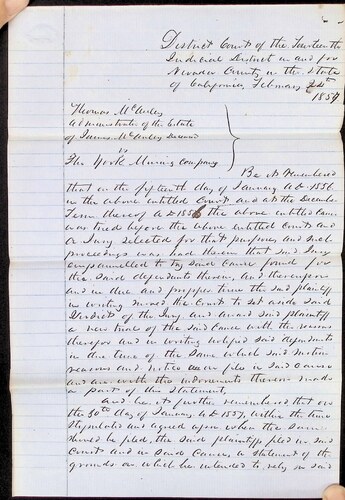 District Court of the Fourteenth
Judicial District in and for
Nevada County in the State
of California, February
1857
Thomas McAuley
Administrator of the Estate
of James McAuley Deceased
vs
The York Mining Company
Be it remembered
that on the fifteenth day of January A.D. 1856
in the above entitled Court and at the December
Term thereof A.D. 1856 the above entitled Cause
was tried before the above entitled Court and
a Jury selected for that purpose, and such
proceedings were had therein that said Jury
empannelled to try said Cause found for
the said defendants therein, And thereupon
and in due and proper time the said plaintiff
in writing moved the Court to set aside said
Verdict of the Jury and award said plaintiff
a new trial of the said Cause with the reasons
therefor and in writing notified said defendants
in due time of the same which said motion
reasons and notice are on file in said Cause
and are with the indorsements thereon made
a part of this Statement,
And be it further remembered that on
the 30th day of January A.D. 1857, within the time
stipulated and agreed upon when the same
should be filed, the said plaintiff filed in said
Court and in said Cause, a statement of the
grounds on which he intended to rely in said